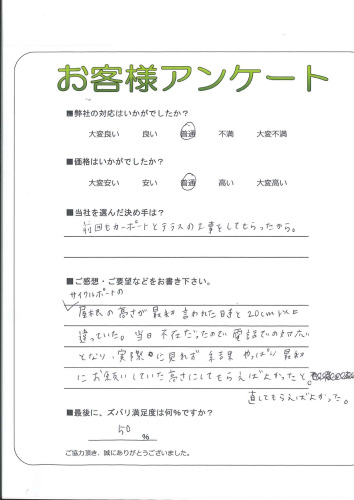 お客様アンケート
■弊社の対応はいかがでしたか？
大変良い 良い 普通 不満 大変不満
■価格はいかがでしたか？
大変安い 安い 普通 高い 大変高い
■当社を選んだ決め手は？
前回もカーポートとテラスの工事をしてもらったから。
■ご感想・ご要望などをお書き下さい。
サイクルポートの
屋根の高さが最初言われた日時と20cm以上
違っていた。当日不在だったので電話での対応
となり、実際に見れず結果やっぱり最初
にお願いしていた高さにしてもらえばよかったと。
直してもらえばよかった。
■最後に、ズバリ満足度は何％ですか？
50
％
ご協力頂き、誠にありがとうございました。